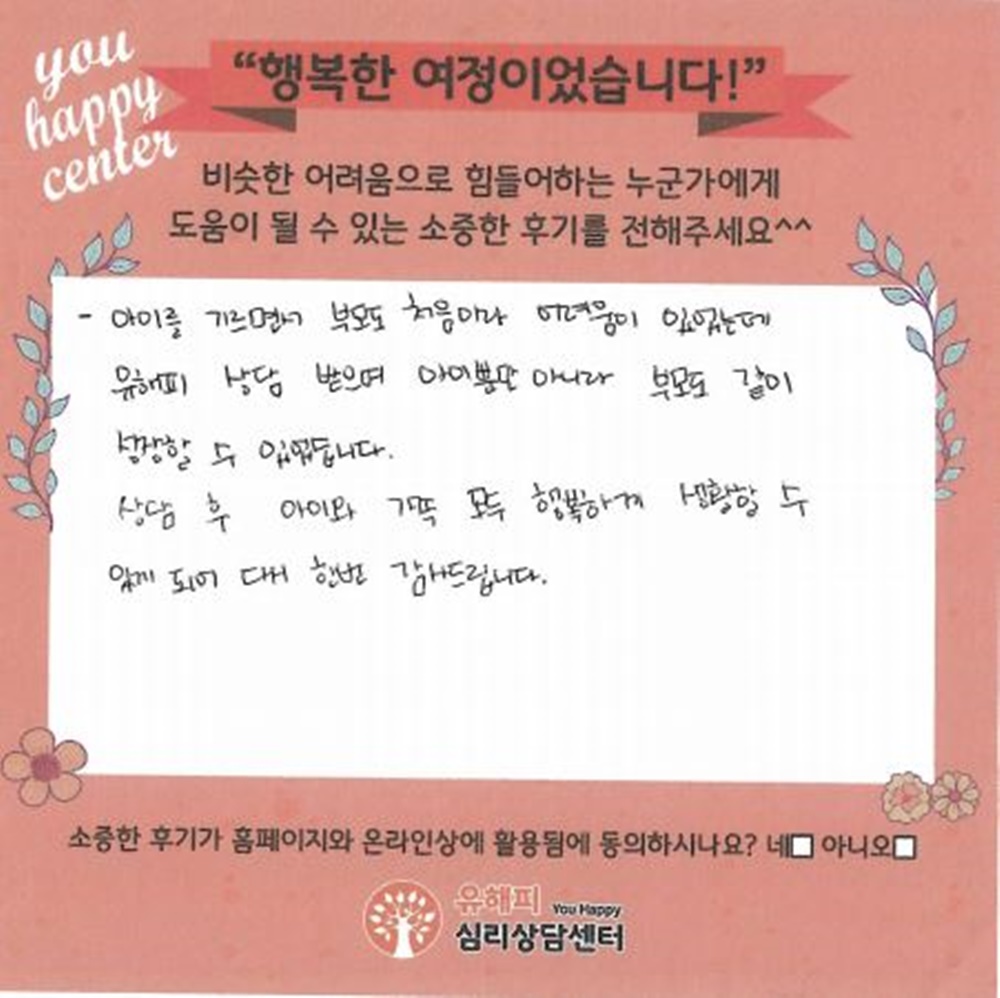 you
happy
center
“행복한 여정이었습니다!”
비슷한 어려움으로 힘들어하는 누군가에게
도움이 될 수 있는 소중한 후기를 전해주세요^^
- 아이를 기르면서 부모도 처음이라 어려움이 있었는데
유해피 상담 받으며 아이뿐만 아니라 부모도 같이
성장할 수 있었습니다.
상담 후 아이와 가족 모두 행복하게 생활할 수
있게 되어 다시 한번 감사드립니다.
소중한 후기가 홈페이지와 온라인상에 활용됨에 동의하시나요? 네□ 아니오□
유해피 You Happy
심리상담센터